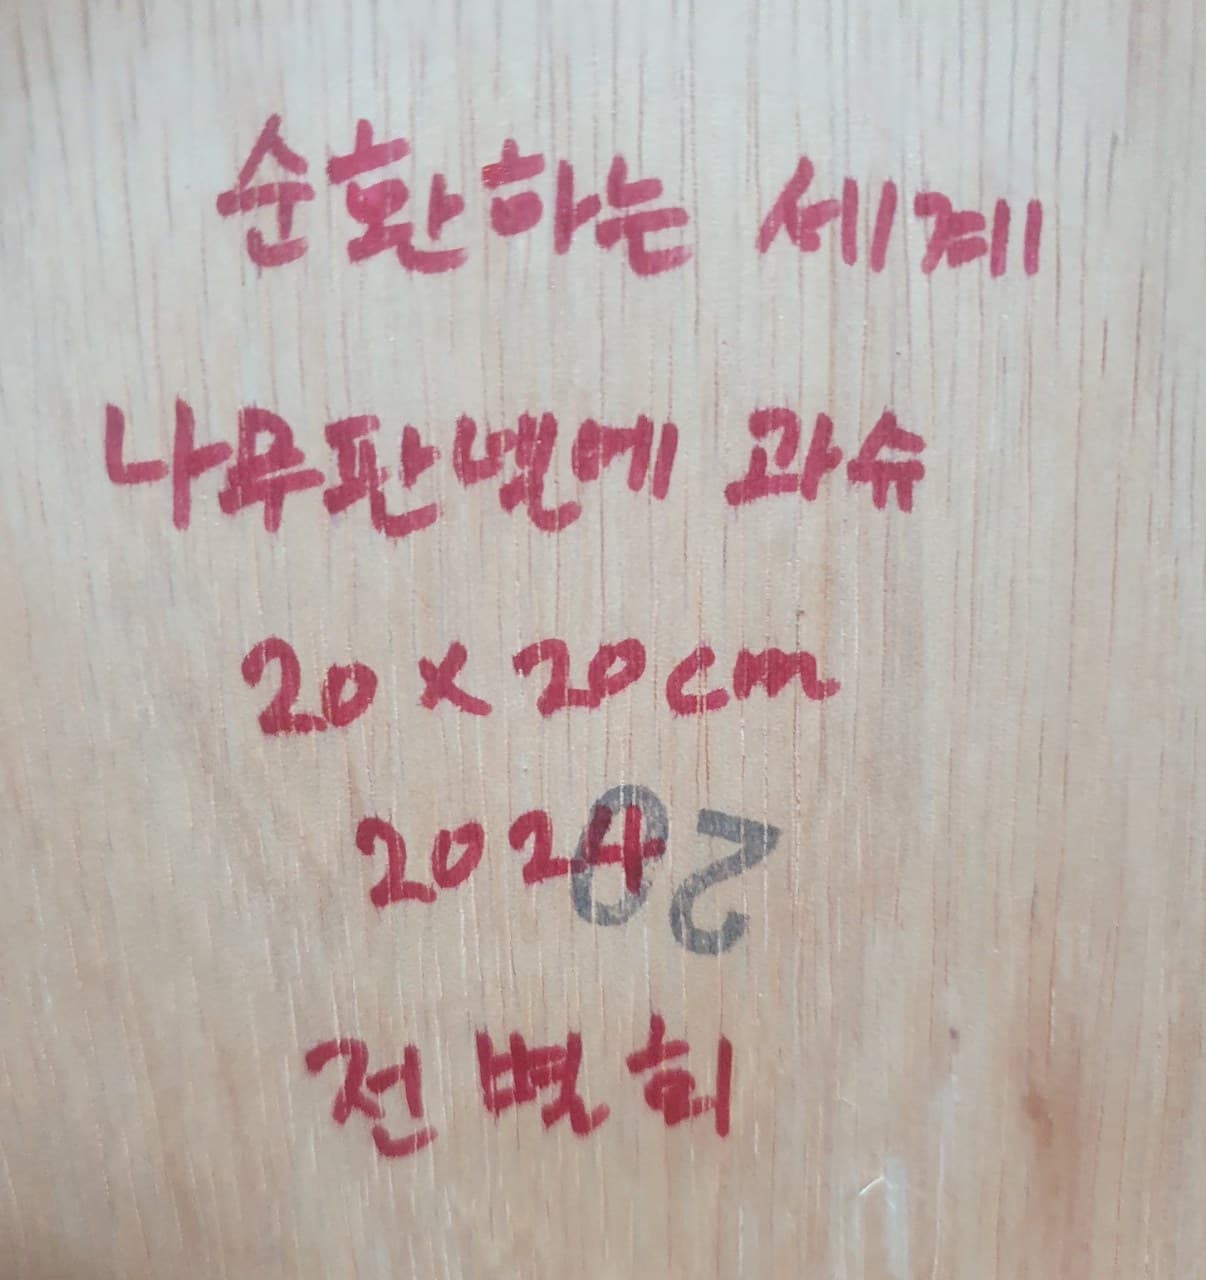 순환하는 세계
나무판넬에 과슈
20 x 20cm
2024
02
전별희